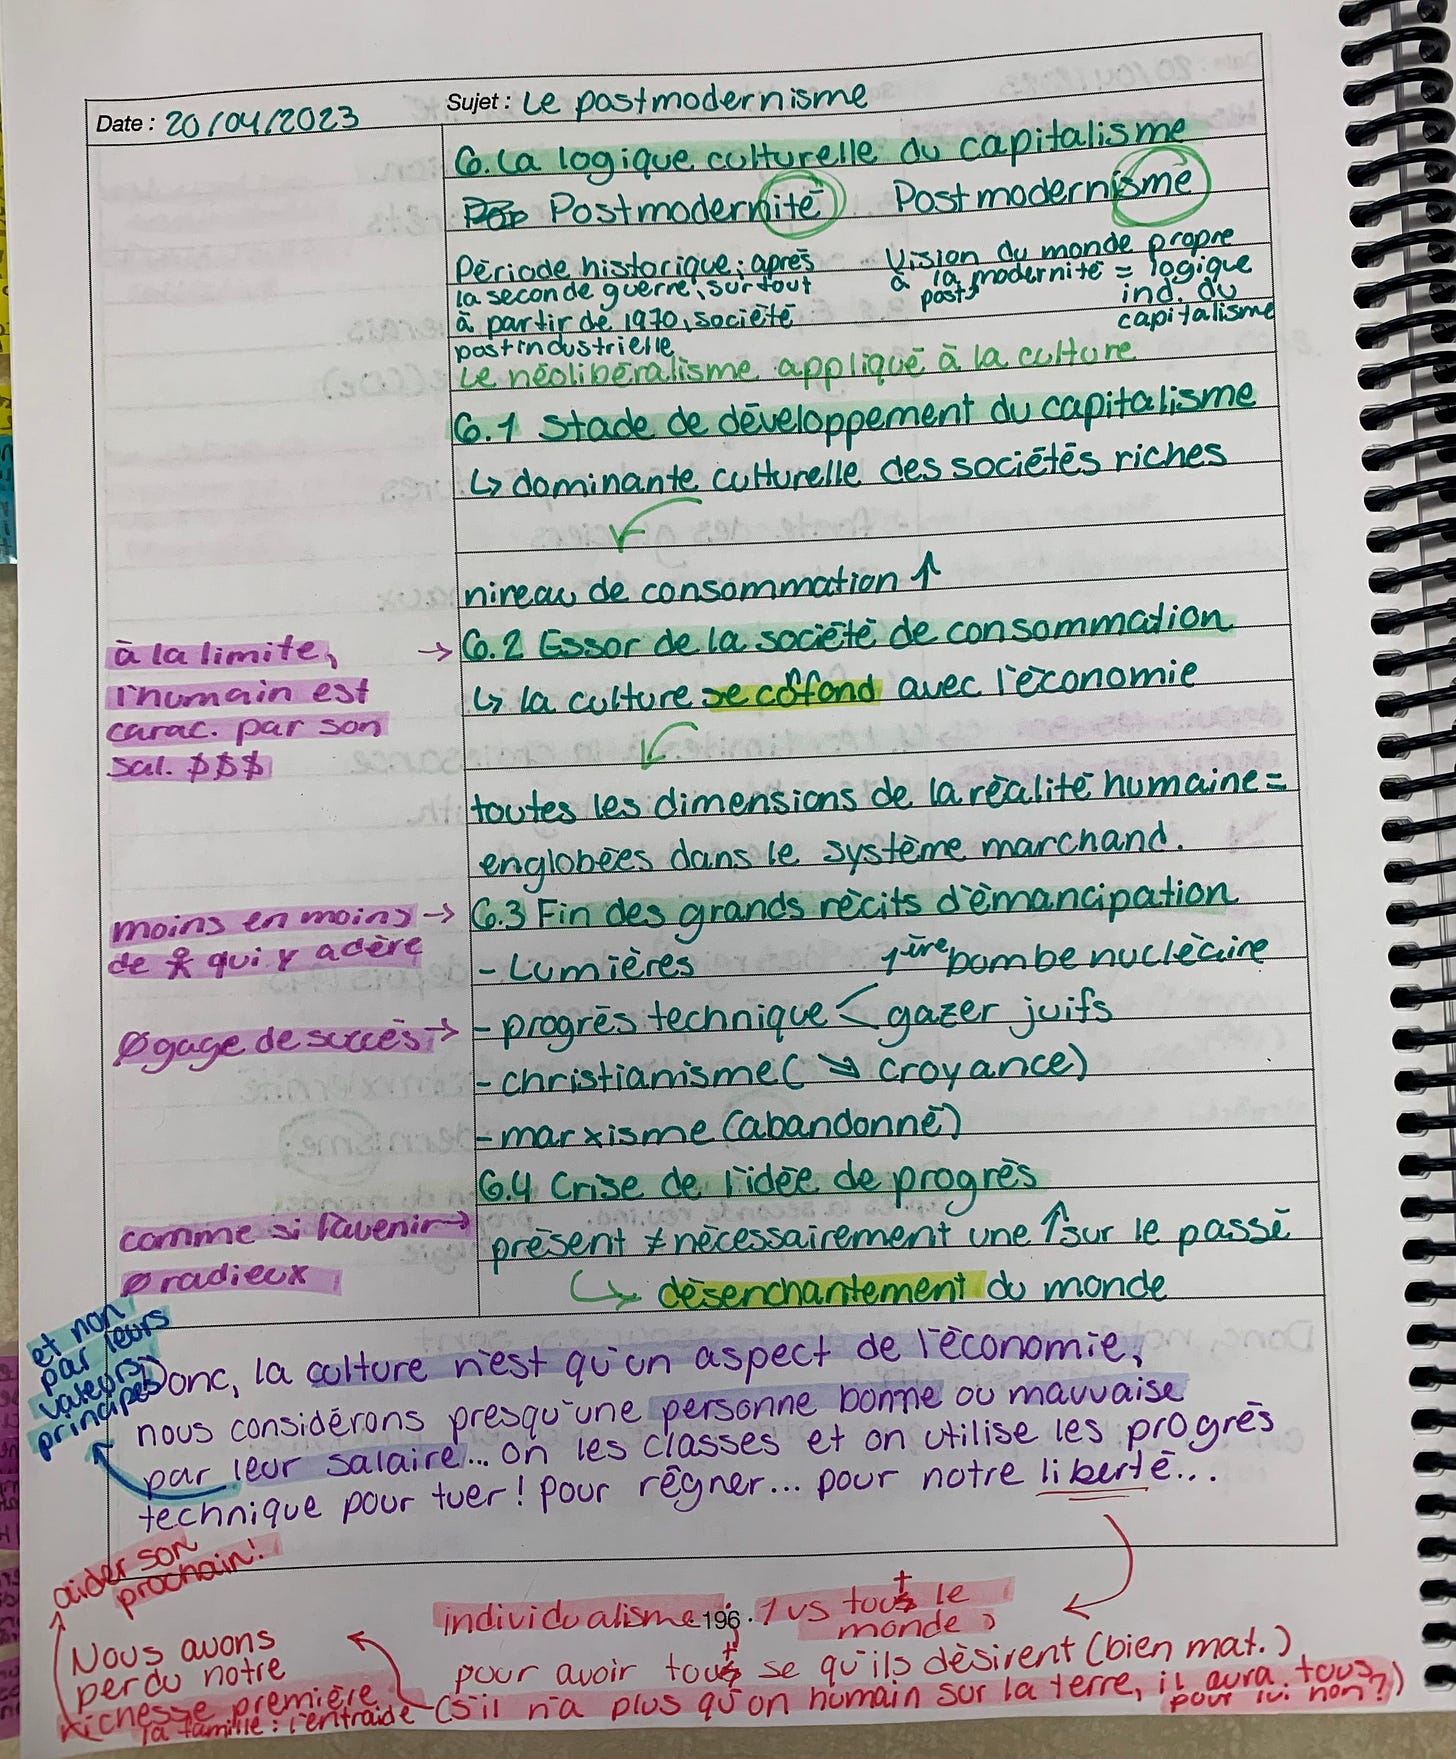 Date : 20/04/2023
Sujet : Le postmodernisme
6. La logique culturelle du capitalisme
Postmodernité Postmodernisme
Période historique; après
la seconde guerre, surtout
à partir de 1970, société
postindustrielle
Vision du monde propre
à la postmodernité = logique
ind. du
capitalisme
Le néolibéralisme appliqué à la culture
6.1 Stade de développement du capitalisme
↳ dominante culturelle des sociétés riches
nireau de consommation ↑
à la limite,
l'humain est
carac. par son
sal. $$$
→ 6.2 Essor de la société de consommation
↳ la culture se confond avec l'économie
toutes les dimensions de la réalité humaine =
englobées dans le système marchand.
moins en moins →
de qui y adère
6.3 Fin des grands récits d'émancipation
- Lumières
1ière bombe nucléaire
Ø gage de succès →
- progrès technique < gazer juifs
- christianisme (↘ croyance)
- marxisme (abandonné)
6.4 Crise de l'idée de progrès
comme si l'avenir →
Ø radieux
présent ≠ nécessairement une ↑ sur le passé
↳ désenchantement du monde
et non
par leurs
valeurs,
principes
Donc, la culture n'est qu'un aspect de l'économie,
nous considérons presqu'une personne bonne ou mauvaise
par leur salaire... on les classes et on utilise les progrès
technique pour tuer! pour régner... pour notre liberté...
aider son
prochain!
individualisme : 1 vs tout le
monde,
196
pour avoir tout se qu'ils désirent (bien mat.)
(s'il n'a plus qu'un humain sur la terre, il aura tous
pour lui non?)
Nous avons
perdu notre
richesse première
la famille : l'entraide